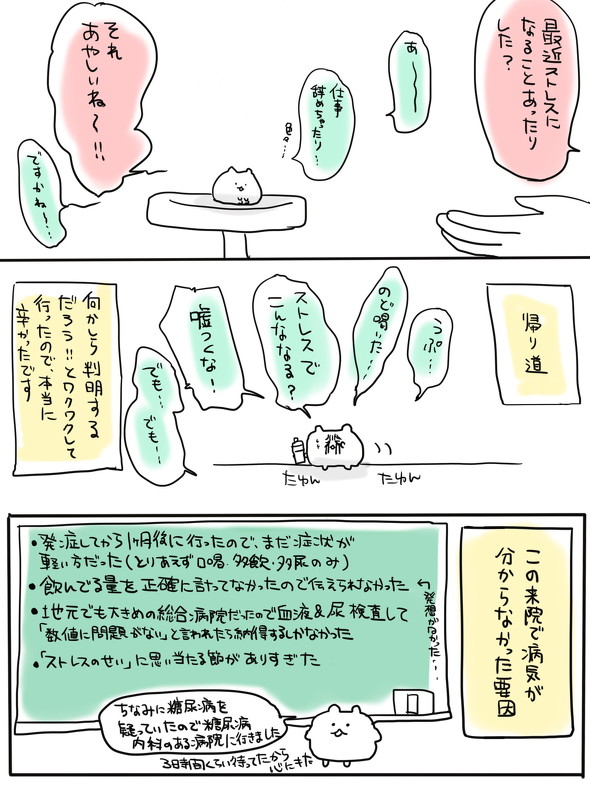 最近ストレスに
なることあったり
した?
あ〜〜〜
仕事
辞めちゃったり…
色々…
それ
あやしいね〜!!
ですかね〜…
帰り道
うぷ…
のど渇いた…
ストレスで
こんななる?
嘘つくな!
でも…でも…
たゆん
たゆん
何かしら判明する
だろう!!とワクワクして
行ったので、本当に
辛かったです
この来院で病気が
分からなかった要因
•発症してから1ヶ月後に行ったので、まだ症状が
軽い方だった(とりあえず口喝・多飲・多尿のみ)
•飲んでる量を正確に計ってなかったので伝えられなかった
←発想がなかった…
•地元でも大きめの総合病院だったので血液&尿検査して
「数値に問題がない」と言われたら納得するしかなかった
•「ストレスのせい」に思い当たる節がありすぎた
ちなみに糖尿病を
疑っていたので糖尿病
内科のある病院に行きました
3時間くらい待ってたから
心にキた